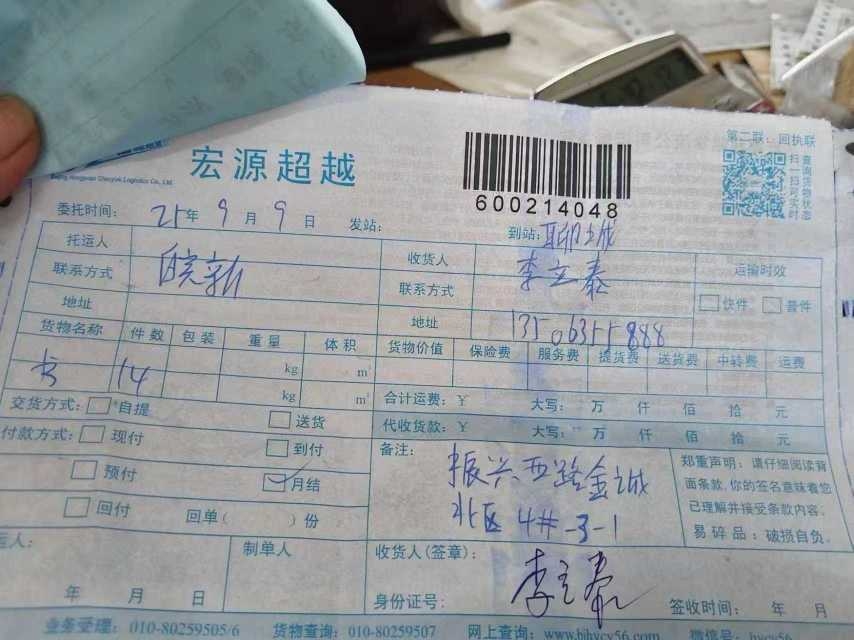 第二联：回执联
宏源超越
600214048
扫一扫可实时
查询货物状态
委托时间： 21年 9 月 9 日 发站： 到站：聊城
托运人 皖新 收货人 李立泰 运输时效
联系方式 联系方式 快件 普件
地址 地址 13506355888
货物名称 件数 包装 重量 体积 货物价值 保险费 服务费 提货费 送货费 中转费 运费
14 kg m³
kg m³ 合计运费：￥ 大写： 万 仟 佰 拾 元
交货方式： 自提 送货 代收货款：￥ 大写： 万 仟 佰 拾 元
付款方式： 现付 到付 备注：
振兴西路金诚
北区 4#-3-1
预付 月结
回付 回单（ ）份
郑重声明：请仔细阅读背
面条款，你的签名意味着您
已理解并接受条款内容。
易碎品：破损自负。
运人： 制单人 收货人(签章)：
李立泰
年 月 日 身份证号： 签收时间： 年 月
业务受理：010-80259505/6 货物查询：010-80259507 网上查询：www.bjhycy56.com 微信号：